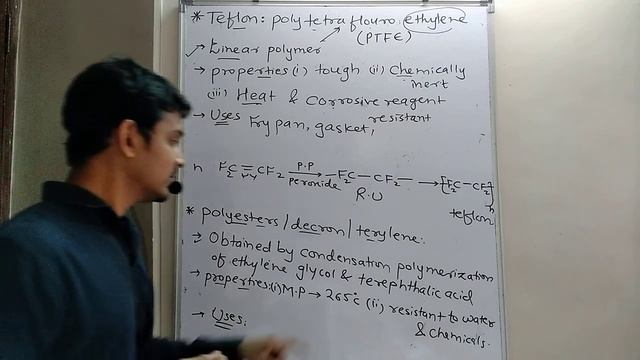 * Teflon: polytetraflouro ethylene
(PTFE)
→ Linear polymer
→ properties (i) tough (ii) Chemically inert
(iii) Heat & Corrosive reagent resistant
→ Uses Fry pan, gasket,
n F₂C = CF₂ P.P peroxide → -F₂C - CF₂ - → [F₂C - CF₂]n
R.U
teflon
* polyesters / decron / terylene.
→ Obtained by condensation polymerization
of ethylene glycol & terephthalic acid
→ properties: (i) M.P → 265°c (ii) resistant to water
& chemicals.
→ Uses: